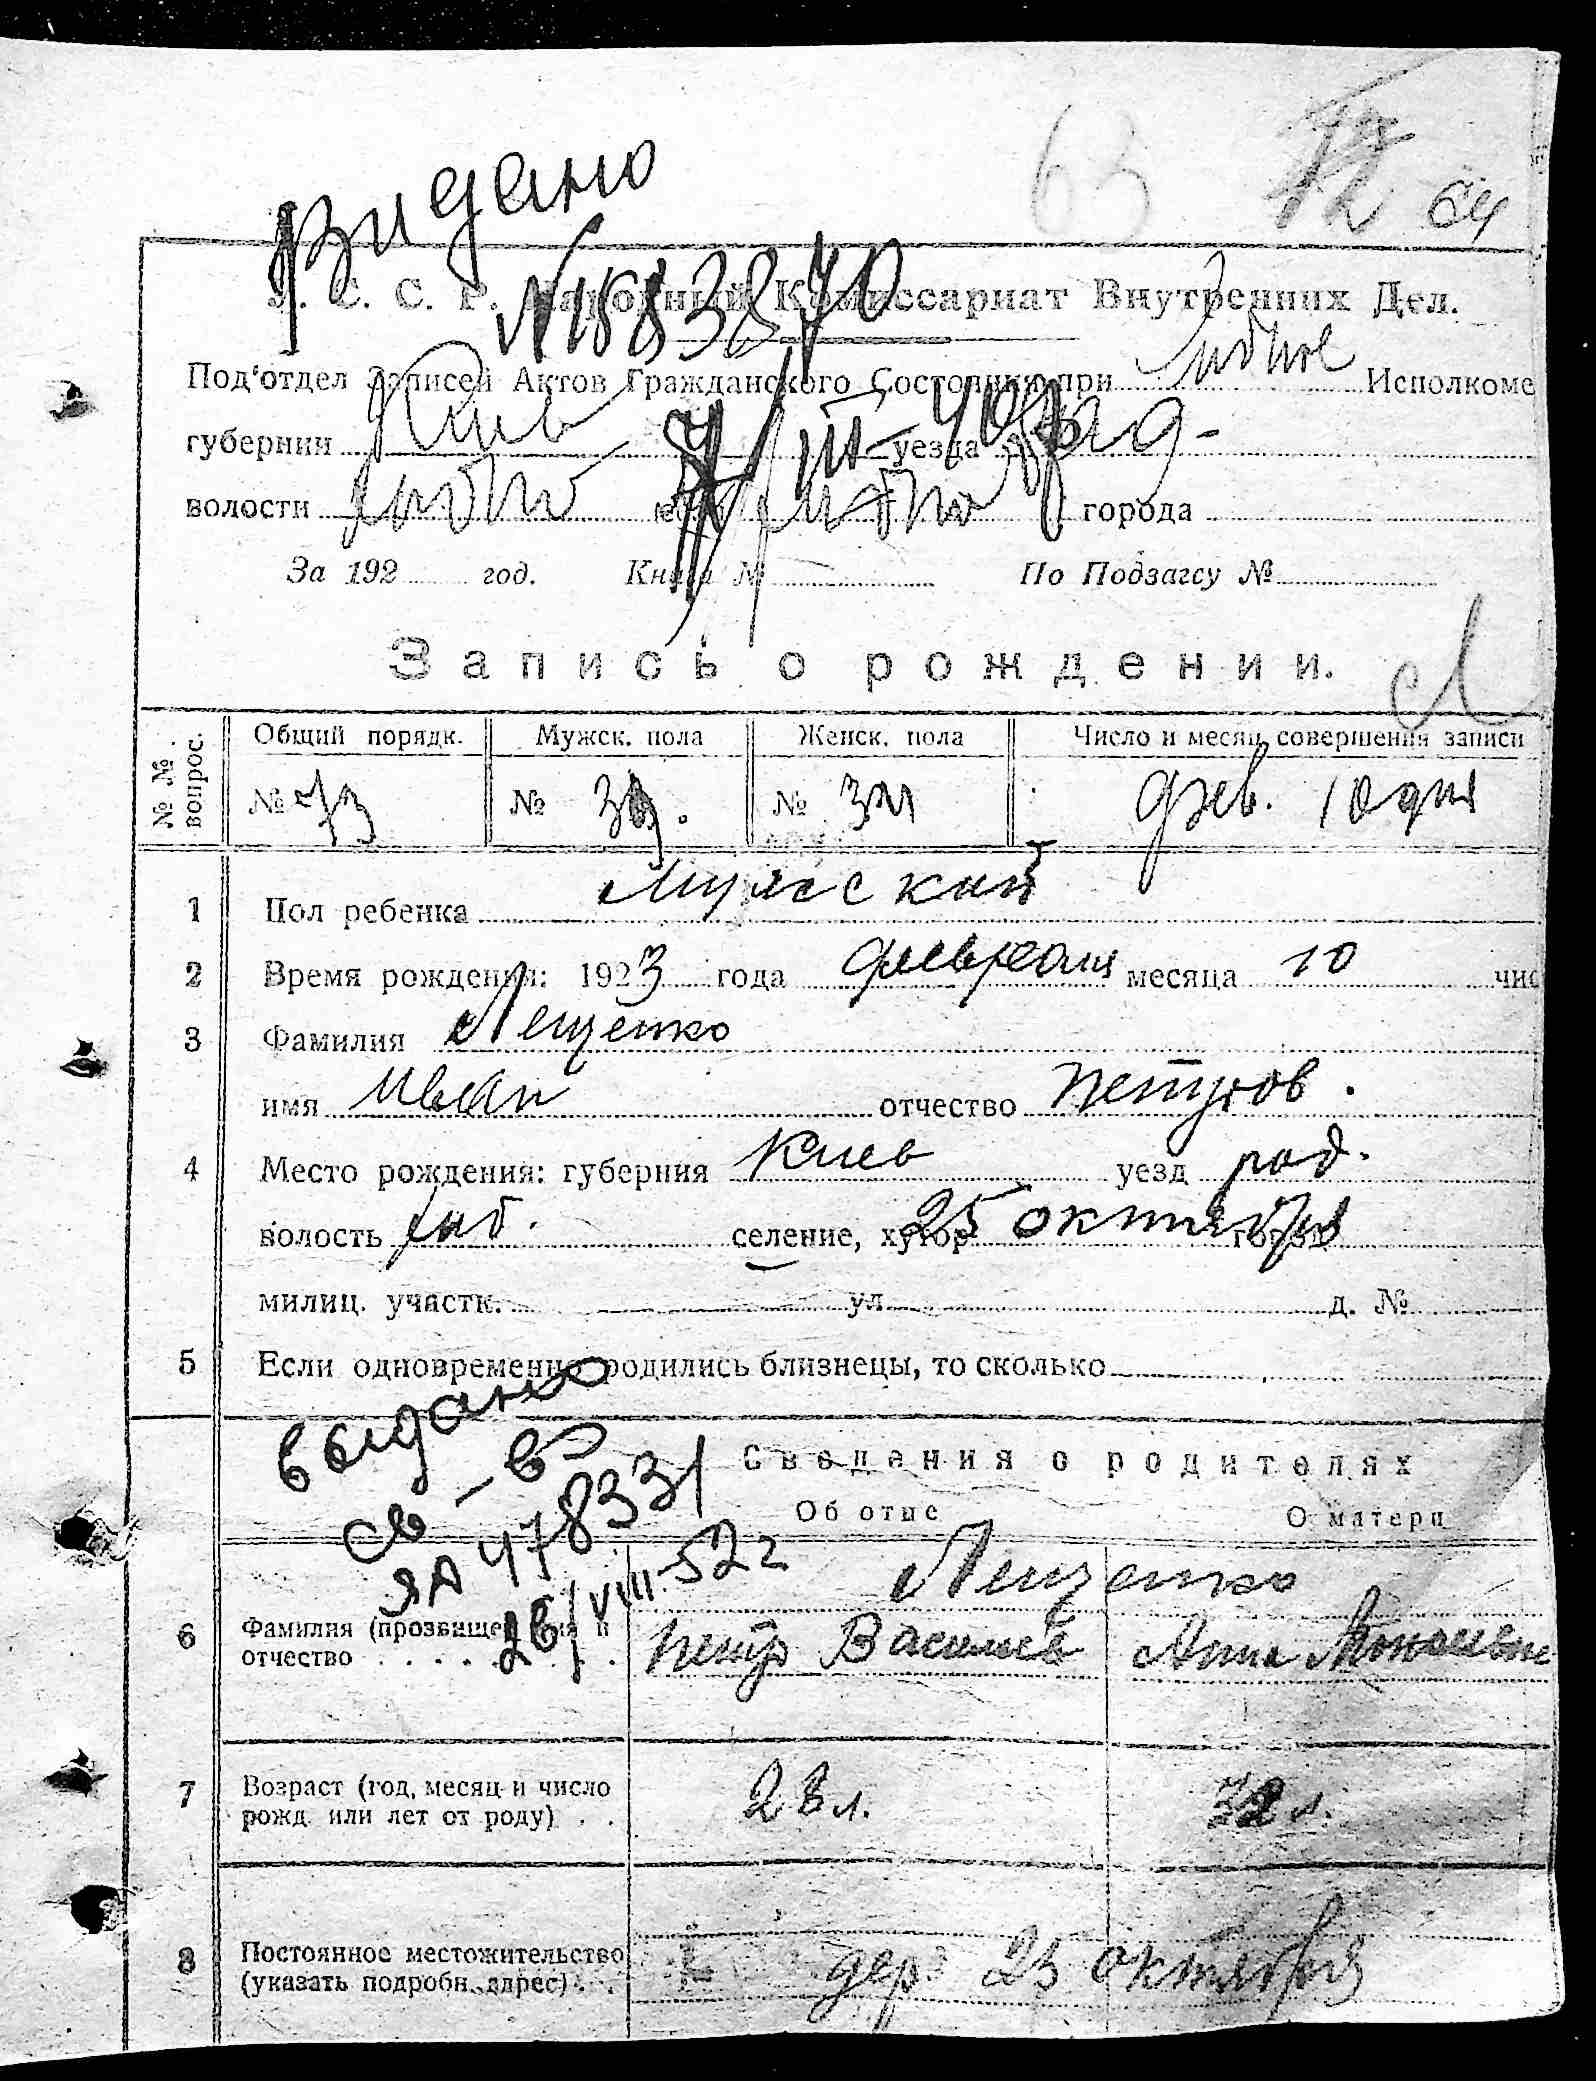 63 64
Видано
№1583870
У. С. С. Р. Народный Комиссариат Внутренних Дел.
Под'отдел Записей Актов Гражданского Состояния при Исполкоме
губернии Киев уезда рад-
волости города
За 192 год. Книга № По Подзагсу №
Запись о рождении.
№ № вопрос.
Общий порядк. Мужск. пола Женск. пола Число и месяц совершения записи
№ 73 № 39. № 34 фев. 10 дня
1 Пол ребенка Мужеский
2 Время рождения: 1923 года февраля месяца 10 чис
3 Фамилия Лещенко
имя Иван отчество Петров.
4 Место рождения: губерния Киев уезд рад.
волость селение, хутор 25 октября город
милиц. участк. ул. д. №
5 Если одновременно родились близнецы, то сколько
выдано
св-во
ЯА 478331
26/VIII-52 г
Сведения о родителях
Об отце О матери
Лещенко
6 Фамилия (прозвище), имя и
отчество . . . . . . . Петр Васильев Анна
7 Возраст (год, месяц и число
рожд. или лет от роду) . . 28 л. 32 л.
8 Постоянное местожительство
(указать подробн. адрес) . . . дер. 25 октября